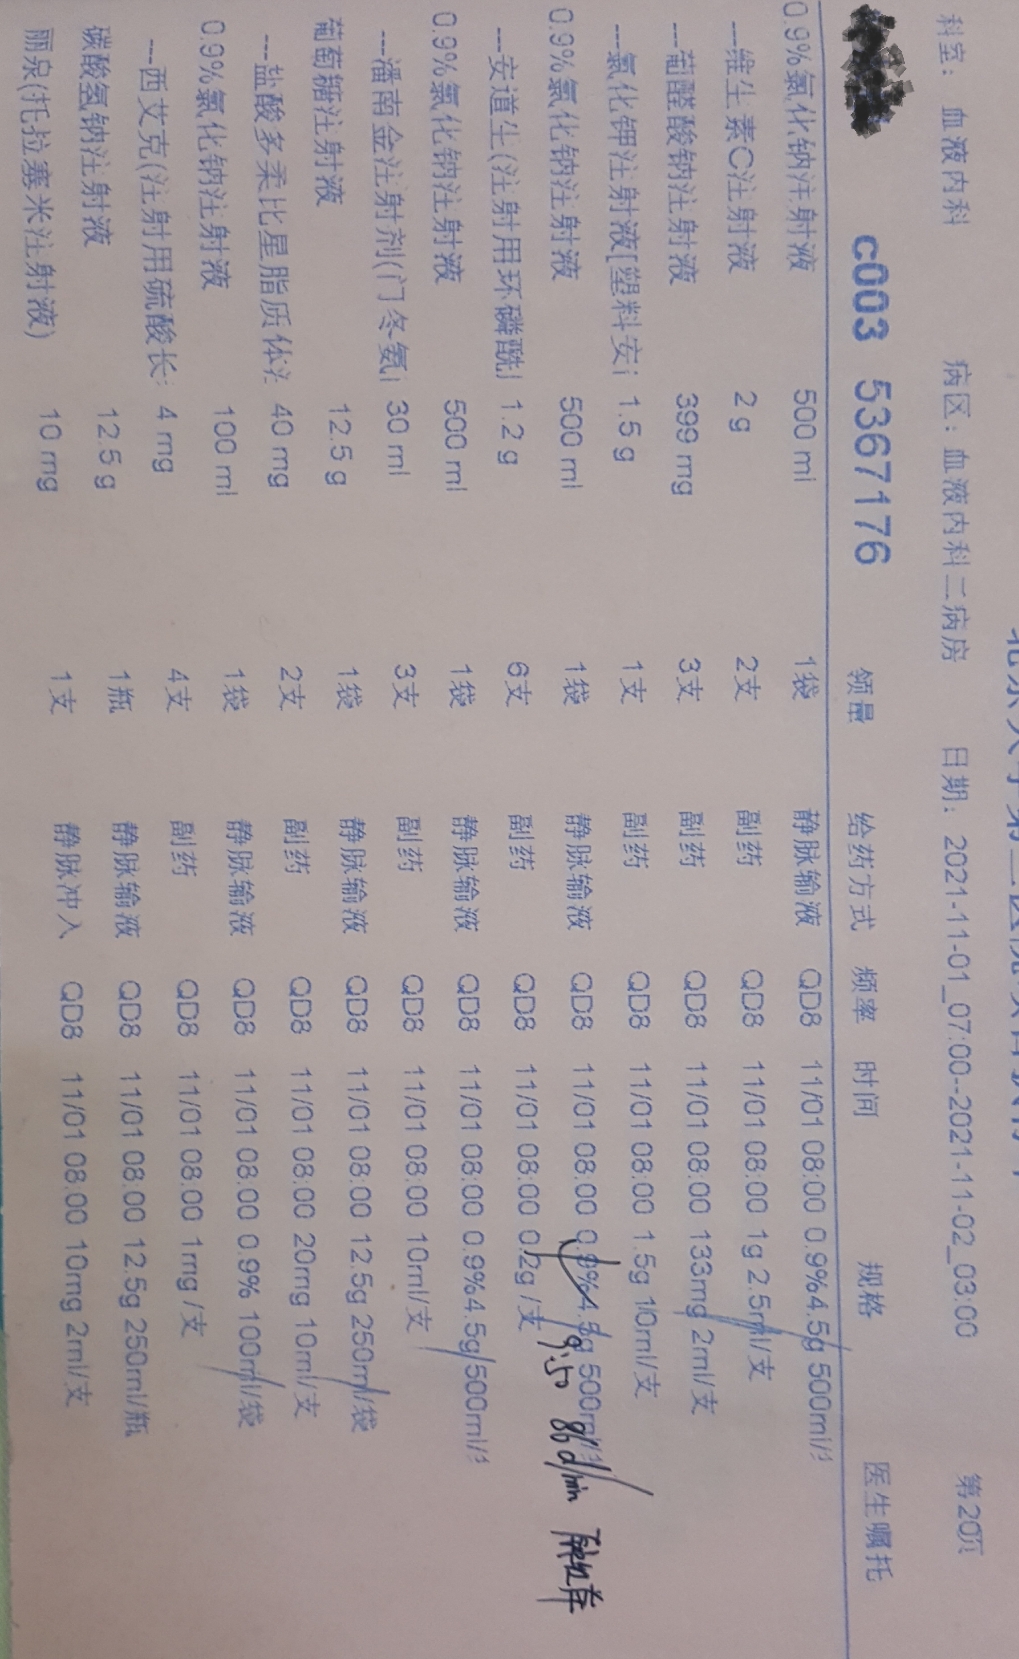 科室：血液内科 病区：血液内科二病房 日期：2021-11-01_07:00--2021-11-02_03:00 第20页
c003 5367176 领量 给药方式 频率 时间 规格 医生嘱托
0.9%氯化钠注射液 500 ml 1袋 静脉输液 QD8 11/01 08:00 0.9%4.5g 500ml/
---维生素C注射液 2 g 2支 副药 QD8 11/01 08:00 1g 2.5ml/支
---葡醛酸钠注射液 399 mg 3支 副药 QD8 11/01 08:00 133mg 2ml/支
---氯化钾注射液[塑料安 1.5 g 1支 副药 QD8 11/01 08:00 1.5g 10ml/支
0.9%氯化钠注射液 500 ml 1袋 静脉输液 QD8 11/01 08:00 0.9%4.5g 500ml/
---安道生(注射用环磷酰 1.2 g 6支 副药 QD8 11/01 08:00 0.2g /支
9:50 86d/min
0.9%氯化钠注射液 500 ml 1袋 静脉输液 QD8 11/01 08:00 0.9%4.5g/500ml/
---潘南金注射剂(门冬氨 30 ml 3支 副药 QD8 11/01 08:00 10ml/支
葡萄糖注射液 12.5 g 1袋 静脉输液 QD8 11/01 08:00 12.5g 250ml/袋
---盐酸多柔比星脂质体 40 mg 2支 副药 QD8 11/01 08:00 20mg 10ml/支
0.9%氯化钠注射液 100 ml 1袋 静脉输液 QD8 11/01 08:00 0.9% 100ml/袋
---西艾克(注射用硫酸长 4 mg 4支 副药 QD8 11/01 08:00 1mg /支
碳酸氢钠注射液 12.5 g 1瓶 静脉输液 QD8 11/01 08:00 12.5g 250ml/瓶
丽泉(托拉塞米注射液) 10 mg 1支 静脉冲入 QD8 11/01 08:00 10mg 2ml/支